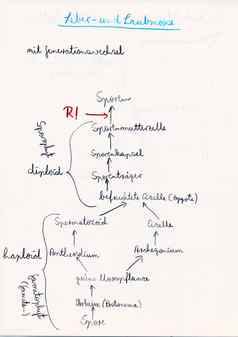 Leber- und Laubmoose
mit Generationswechsel
Sporen
R!
Sporenmutterzelle
Sporophyt
Sporenkapsel
diploid
Sporenträger
befruchtete Eizelle (Zygote)
Spermatozoid Eizelle
haploid
Antheridium Archegonium
Gametophyt
grüne Moospflanze
Vorkeim (Protonema)
Spore